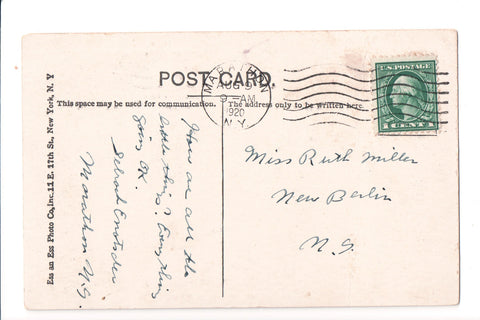 POST CARD.
This space may be used for communication.
The address only to be written here.
MARATHON
AUG 9
9-AM
1920
N.Y.
U.S. POSTAGE
1 CENT 1
Ess an Ess Photo Co., Inc. 11 E. 17th St., New York, N. Y
How are all the
little things? Everything
going OK.
Marathon N.Y.
Miss Ruth Miller
New Berlin
N.Y.